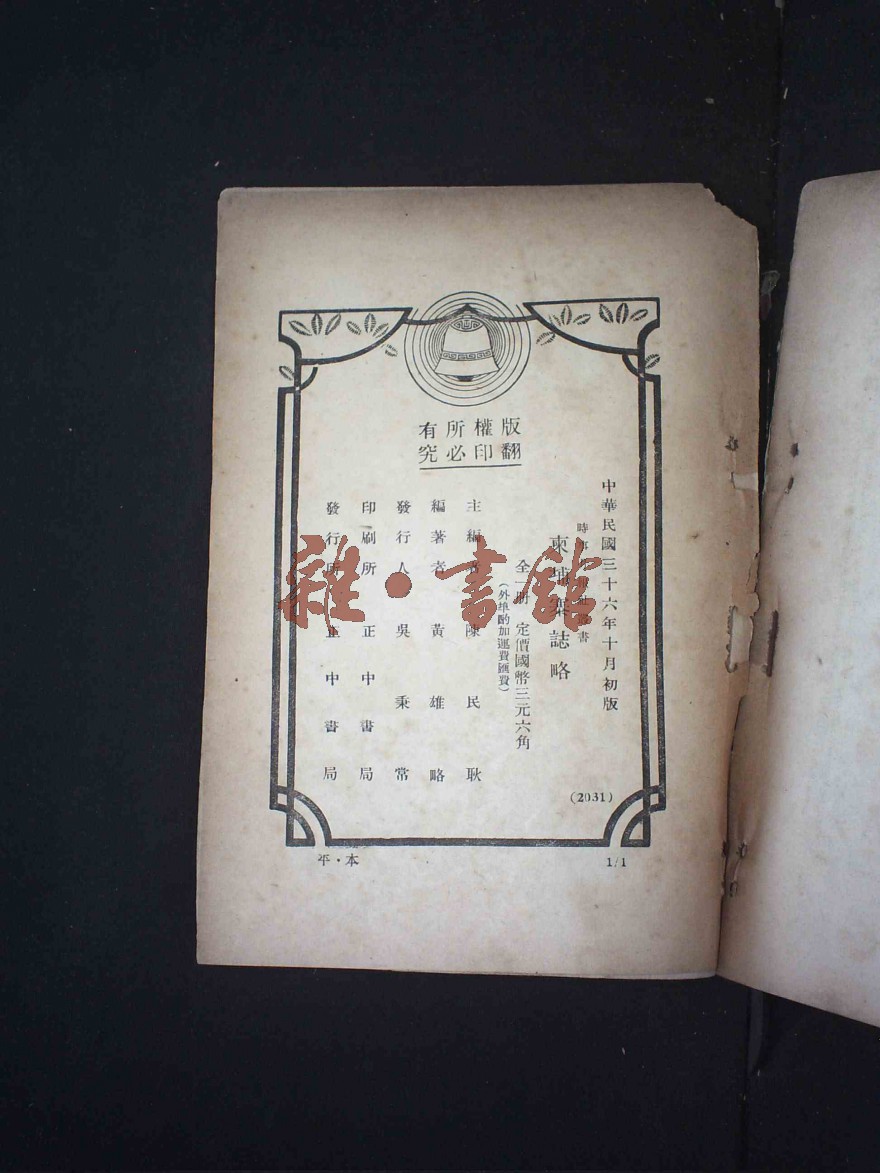 版權所有
翻印必究
中華民國三十六年十月初版
時事
書
柬埔寨誌略
全一册 定價國幣三元六角
(外埠酌加運費匯費)
主編者 陳民耿
編著者 黃雄略
發行人 吳秉常
印刷所 正中書局
發行所 正中書局
(2031)
平·本
1/1
雜·書館